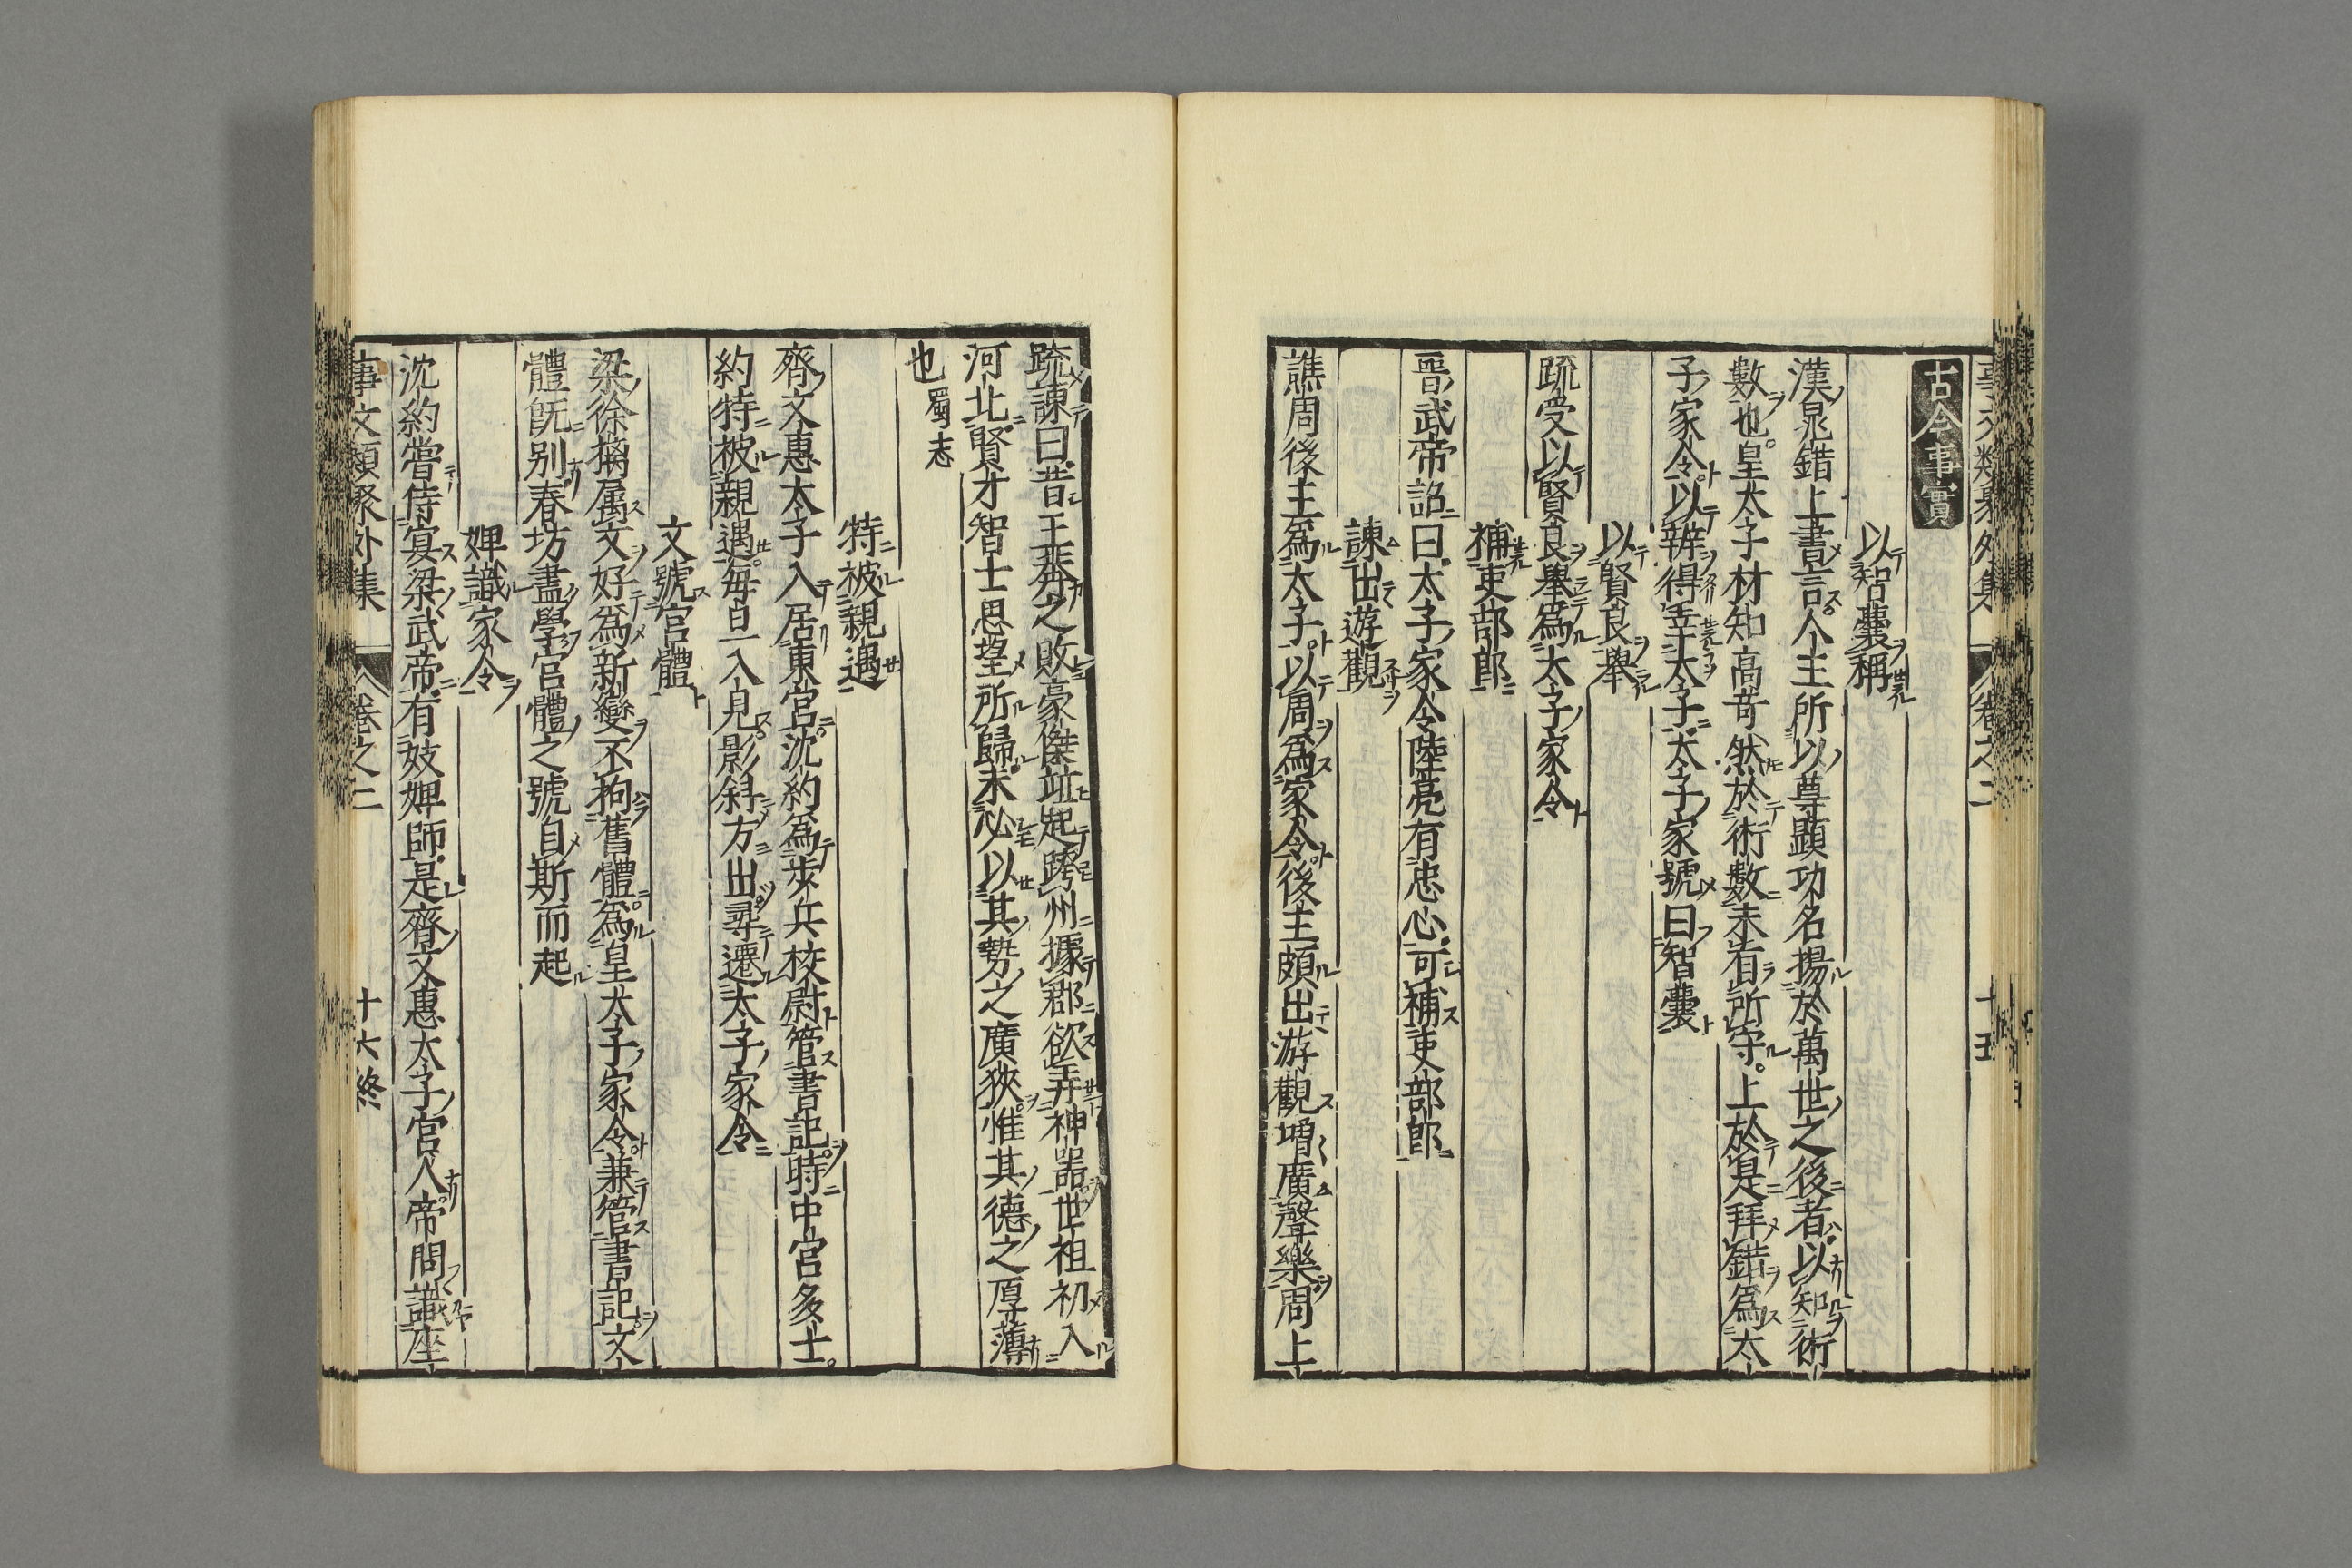 古今事實
以智囊稱
漢晁錯上書言人主所以尊顯功名揚於萬世之後者以知術
數也皇太子材知高竒然於術數未有所守上於是拜錯爲太
子家令以辨得幸太子太子家號曰智囊
以賢良舉
疏受以賢良舉爲太子家令
補吏部郎
晉武帝詔曰太子家令陸亮有忠心可補吏部郎
諫出遊觀
譙周後主爲太子以周爲家令後主頗出游觀増廣聲樂周上
疏諫曰昔王莽之敗豪傑竝起跨州據郡欲弄神器世祖初入
河北賢才智士思望所歸未必以其勢之廣狹惟其德之厚薄
也 蜀志
特被親遇
齊文惠太子入居東宮沈約爲步兵校尉管書記時中宮多士
約特被親遇每旦入見影斜方出尋遷太子家令
文號宮體
梁徐摛属文好爲新變不拘舊體爲皇太子家令兼管書記文
體旣別春坊盡學宮體之號自斯而起
婢識家令
沈約嘗侍宴梁武帝有妓婢師是齊文惠太子宮人帝問識座
事文類聚外集 卷之二 十六終